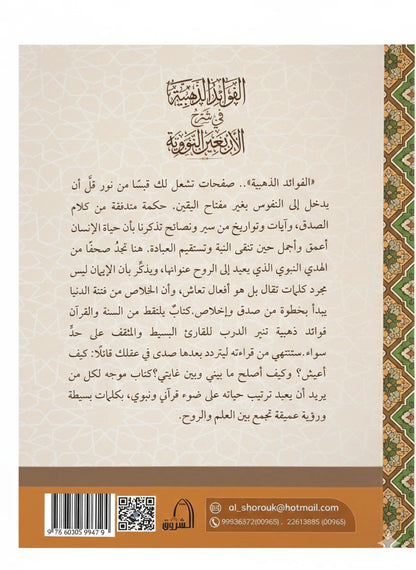 الفوائد الذهبية
في شرح
الأربعين النووية
«الفوائد الذهبية».. صفحات تشعل لك قبسًا من نور قلَّ أن
يدخل إلى النفوس بغير مفتاح اليقين. حكمة متدفقة من كلام
الصدق، وآيات وتواريخ من سير ونصائح تذكرنا بأن حياة الإنسان
أعمق وأجمل حين تنقى النية وتستقيم العبادة. هنا تجدُ صحفًا من
الهدي النبوي الذي يعيد إلى الروح عنوانها، ويذكِّر بأن الإيمان ليس
مجرد كلمات تقال بل هو أفعال تعاش، وأن الخلاص من فتنة الدنيا
يبدأ بخطوة من صدق وإخلاص.كتابٌ يلتقط من السنة والقرآن
فوائد ذهبية تنير الدرب للقارئ البسيط والمثقف على حدٍّ
سواء.ستنتهي من قراءته ليتردد بعدها صدى في عقلك قائلًا: كيف
أعيش؟ وكيف أصلح ما بيني وبين غايتي؟كتاب موجه لكل من
يريد أن يعيد ترتيب حياته على ضوء قرآني ونبوي، بكلمات بسيطة
ورؤية عميقة تجمع بين العلم والروح.
al_shorouk@hotmail.com
99936572(00965) , 22613885 (00965)
الشروق
9 786030 599479